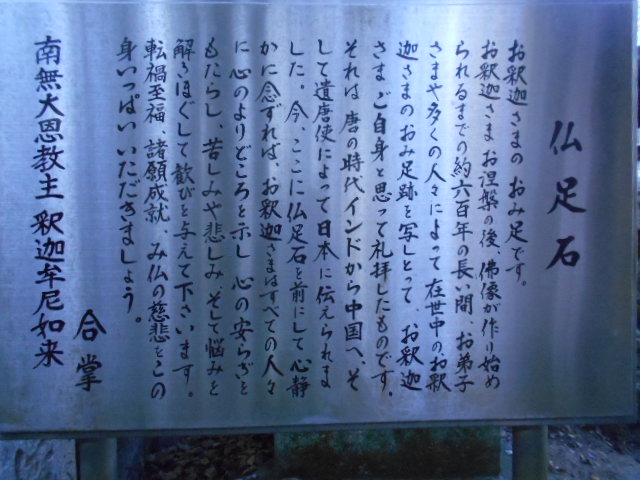 仏足石
お釈迦さまの おみ足です。
お釈迦さま お涅槃の後 佛像が作り始め
られるまでの約六百年の長い間、お弟子
さまや多くの人々によって在世中のお釈
迦さまのおみ足跡を写しとって、お釈迦
さまご自身と思って礼拝したものです。
それは 唐の時代インドから中国へ、そ
して遣唐使によって日本に伝えられま
した。今、ここに仏足石を前にして心静
かに念ずれば、お釈迦さまはすべての人々
に心のよりどころを示し 心の安らぎを
もたらし、苦しみや悲しみ、そして悩みを
解きほぐして歓びを与えて下さいます。
転禍至福、諸願成就、み仏の慈悲をこの
身いっぱいいただきましょう。
合掌
南無大恩教主 釈迦牟尼如来